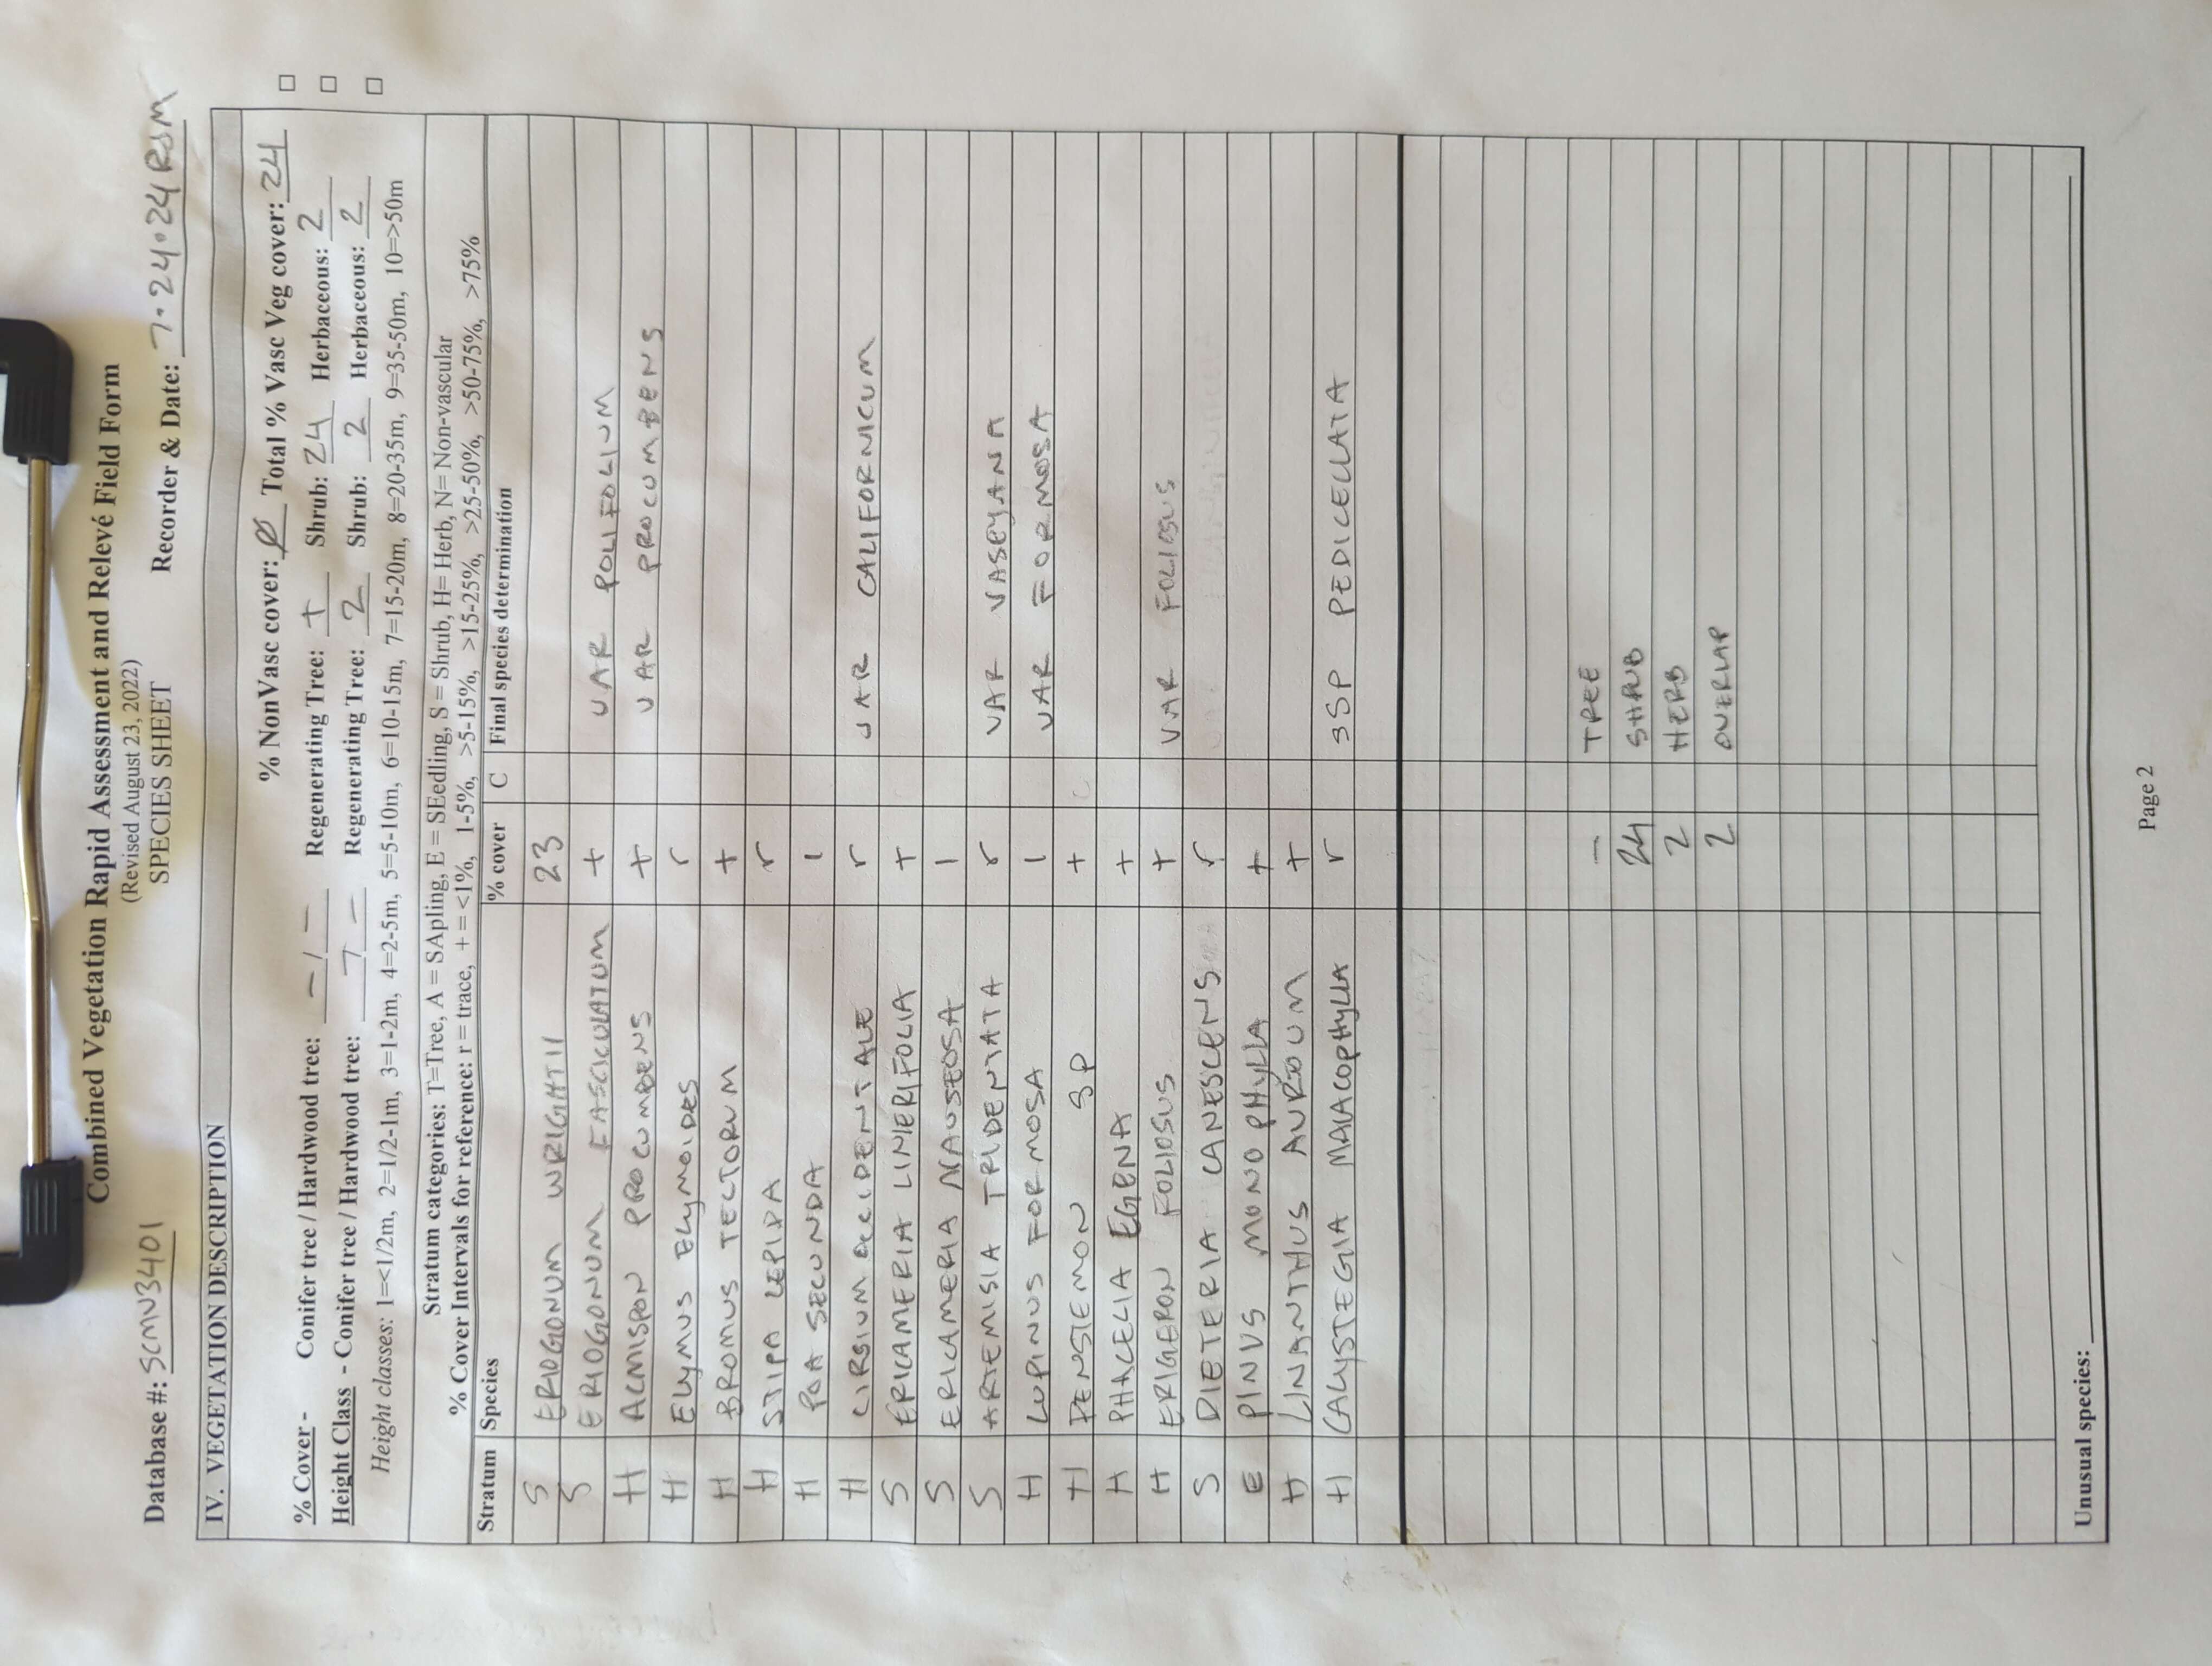 Combined Vegetation Rapid Assessment and Relevé Field Form
(Revised August 23, 2022)
Database #: SCMN3401 SPECIES SHEET Recorder & Date: 7·24·24 RSM
IV. VEGETATION DESCRIPTION
% NonVasc cover: Ø Total % Vasc Veg cover: 24
% Cover - Conifer tree / Hardwood tree: – / – Regenerating Tree: + Shrub: 24 Herbaceous: 2
Height Class - Conifer tree / Hardwood tree: Regenerating Tree: 2 Shrub: 2 Herbaceous: 2
Height classes: 1=<1/2m, 2=1/2-1m, 3=1-2m, 4=2-5m, 5=5-10m, 6=10-15m, 7=15-20m, 8=20-35m, 9=35-50m, 10=>50m
Stratum categories: T=Tree, A = SApling, E = SEedling, S = Shrub, H= Herb, N= Non-vascular
% Cover Intervals for reference: r = trace, + = <1%, 1-5%, >5-15%, >15-25%, >25-50%, >50-75%, >75%
Stratum Species % cover C Final species determination
S ERIOGONUM WRIGHTII 23
S ERIOGONUM FASCICULATUM + VAR POLIFOLIUM
H ACMISPON PROCUMBENS + VAR PROCUMBENS
H ELYMUS ELYMOIDES r
H BROMUS TECTORUM +
H STIPA LEPIDA r
H POA SECUNDA 1
H CIRSIUM OCCIDENTALE r VAR CALIFORNICUM
S ERICAMERIA LINIERIFOLIA +
S ERICAMERIA NAUSEOSA 1
S ARTEMISIA TRIDENTATA r VAR VASEYANA
H LUPINUS FORMOSA 1 VAR FORMOSA
H PENSTEMON SP +
H PHACELIA EGENA +
H ERIGERON FOLIOSUS + VAR FOLIOSUS
S DIETERIA CANESCENS r
E PINUS MONOPHYLLA +
H LINANTHUS AUREUM +
H CALYSTEGIA MALACOPHYLLA r SSP PEDICELLATA
– TREE
24 SHRUB
2 HERB
2 OVERLAP
Unusual species:
Page 2